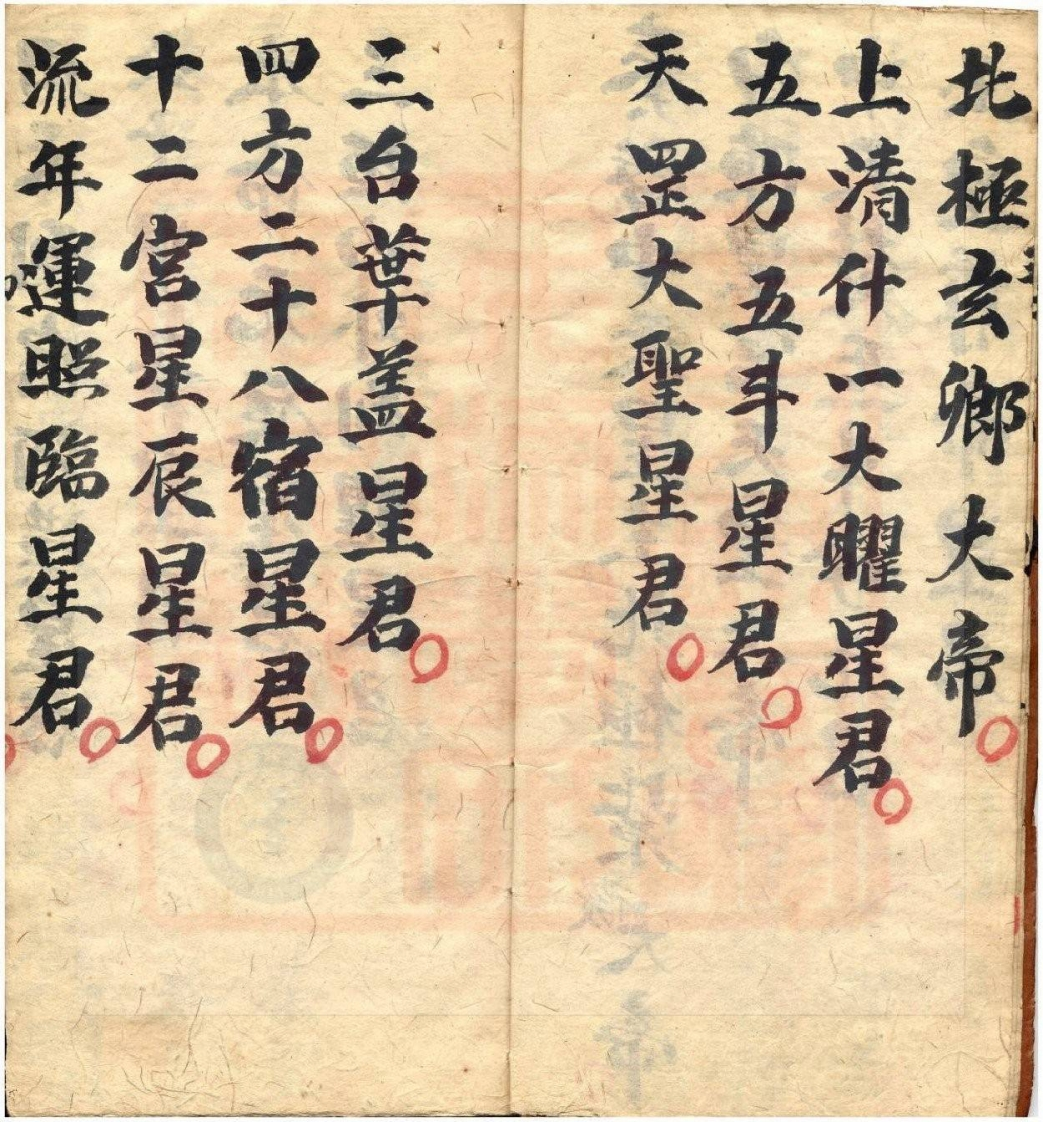 北極玄卿大帝
上清什一大曜星君
五方五斗星君
天罡大聖星君
三台華盖星君
四方二十八宿星君
十二宮星辰星君
流年運照臨星君